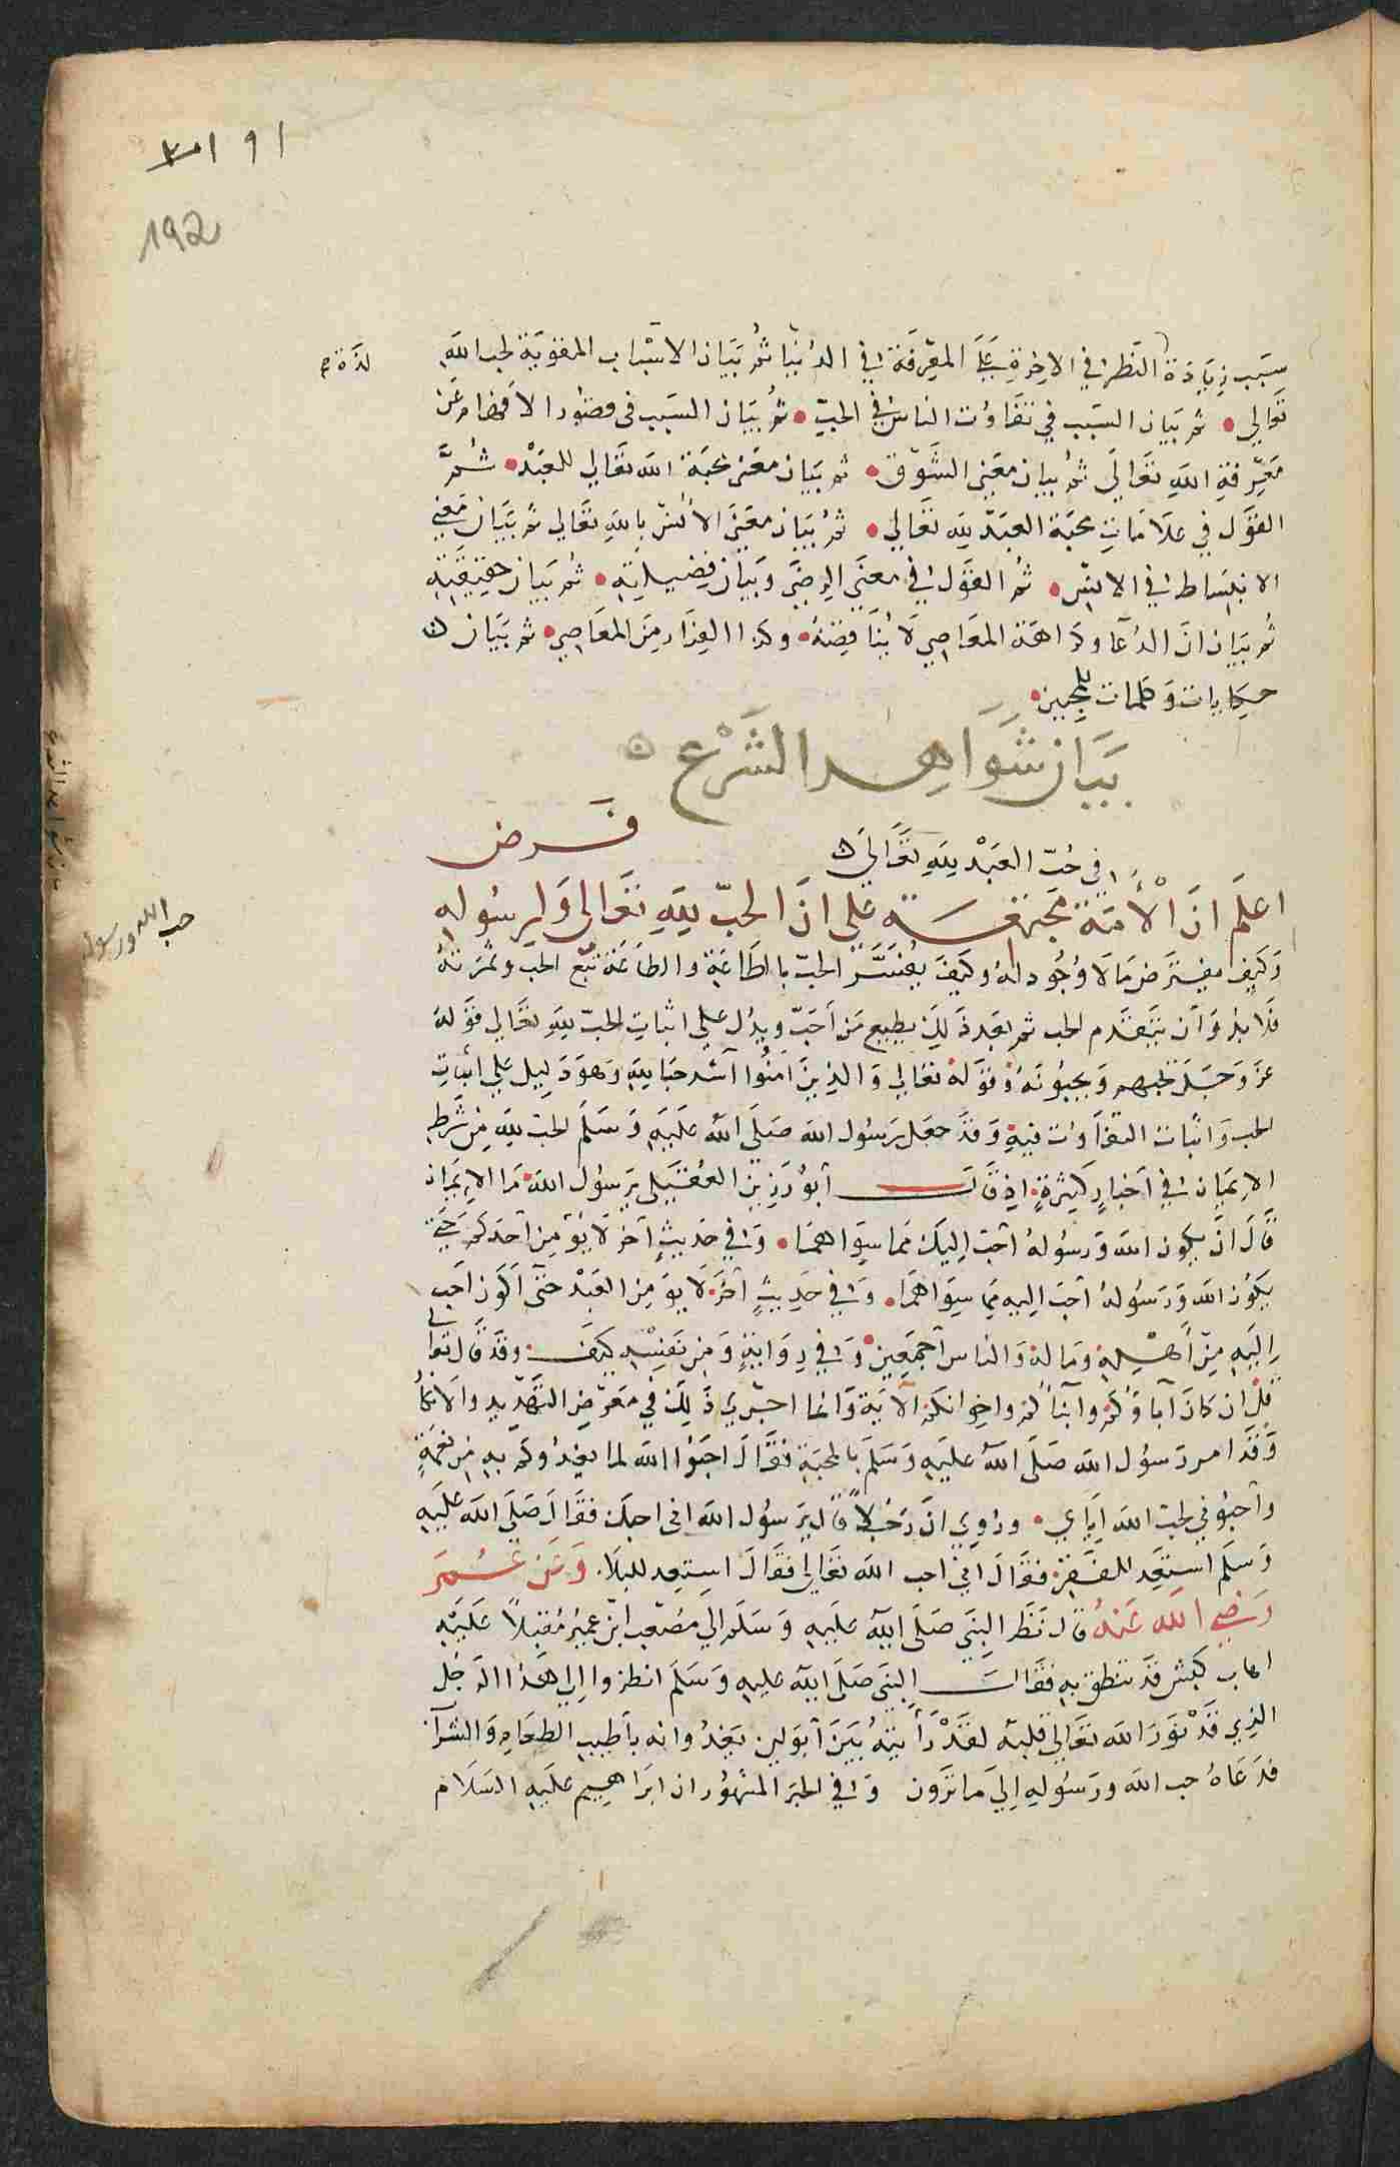 ١٩١
192
لذة صح
سبب زيادة النظر في الاخرة على المعرفة في الدنيا ثم بيان الاسباب المقوية لحب الله
تعالى • ثم بيان السبب في تفاوت الناس في الحب • ثم بيان السبب في قصور الافهام عن
معرفة الله تعالى ثم بيان معنى الشوق • ثم بيان معنى محبة الله تعالى للعبد • ثم
القول في علامات محبة العبد لله تعالى • ثم بيان معنى الانس بالله تعالى ثم بيان معنى
الانبساط في الانس • ثم القول في معنى الرضى وبيان فضيلته • ثم بيان حقيقته
ثم بيان ان الدعا وكراهة المعاصي لا يناقضه • وكذا الفرار من المعاصي • ثم بيان
حكايات وكلمات للمحبين •
بيان شواهد الشرع
في حب العبد لله تعالى
اعلم ان الأمة مجتمعة على ان الحب لله تعالى ولرسوله فرض
وكيف يفترض ما لا وجود له وكيف يفسر الحب بالطاعة والطاعة تتبع الحب وثمرته
فلا بد وان يتقدم الحب ثم بعد ذلك يطيع من أحب ويدل على اثبات الحب لله تعالى قوله
عز وجل يحبهم ويحبونه وقوله تعالى والذين امنوا اشد حبا لله وهو دليل على اثبات
الحب واثبات التفاوت فيه وقد جعل رسول الله صلى الله عليه وسلم الحب لله من شرط
الايمان في اخبار كثيرة اذ قال ابو رزين العقيلي يرسول الله ما الايمان
قال ان يكون الله ورسوله احب اليك مما سواهما • وفي حديث آخر لا يؤمن احدكم حتى
يكون الله ورسوله احب اليه مما سواهما • وفي حديث آخر لا يؤمن العبد حتى أكون احب
اليه من أهله وماله والناس اجمعين • وفي رواية ومن نفسه كيف وقد قال تعالى
قل ان كان آباؤكم وأبناؤكم واخوانكم الآية وانما اجرى ذلك في معرض التهديد والانكار
وقد امر رسول الله صلى الله عليه وسلم بالمحبة فقال احبوا الله لما يغذوكم به من نعمة
واحبوني لحب الله اياي • وروي ان رجلا قال يرسول الله انى احبك فقال صلى الله عليه
وسلم استعد للفقر فقال اني احب الله تعالى فقال استعد للبلا • وعن عمر
رضي الله عنه قال نظر النبي صلى الله عليه وسلم الى مصعب ابن عمير مقبلا عليه
اهاب كبش قد تنطق به فقال النبي صلى الله عليه وسلم انظروا الى هذا الرجل
الذي قد نور الله تعالى قلبه لقد رأيته بين أبوين يغذوانه باطيب الطعام والشراب
فدعاه حب الله ورسوله الى ما ترون وفي الخبر المشهور ان ابراهيم عليه السلام
حب الله ورسوله